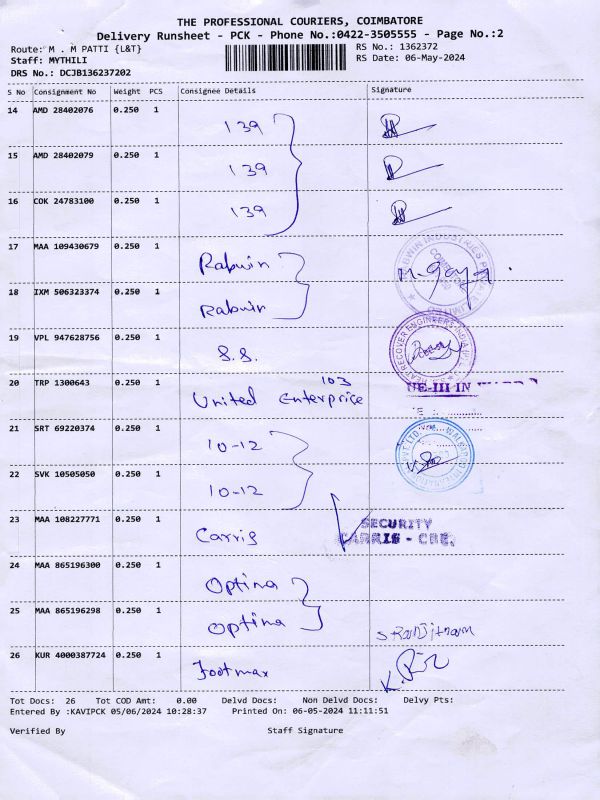 THE PROFESSIONAL COURIERS, COIMBATORE
Delivery Runsheet - PCK - Phone No.:0422-3505555 - Page No.:2
Route: M . M PATTI {L&T}
RS No.: 1362372
Staff: MYTHILI
RS Date: 06-May-2024
DRS No.: DCJB136237202
S No Consignment No Weight PCS Consignee Details Signature
14 AMD 28402076 0.250 1 139
15 AMD 28402079 0.250 1 139
16 COK 24783100 0.250 1 139
17 MAA 109430679 0.250 1 Rabwin
18 IXM 506323374 0.250 1 Rabwin
19 VPL 947628756 0.250 1 S.S.
20 TRP 1300643 0.250 1 United Enterprice 103
21 SRT 69220374 0.250 1 10-12
22 SVK 10505050 0.250 1 10-12
23 MAA 108227771 0.250 1 Carris SECURITY
CARRIS - CBE.
24 MAA 865196300 0.250 1 Optina
25 MAA 865196298 0.250 1 Optina S Ranjitham
26 KUR 4000387724 0.250 1 Footmax
Tot Docs: 26 Tot COD Amt: 0.00 Delvd Docs: Non Delvd Docs: Delvy Pts:
Entered By :KAVIPCK 05/06/2024 10:28:37 Printed On: 06-05-2024 11:11:51
Verified By Staff Signature